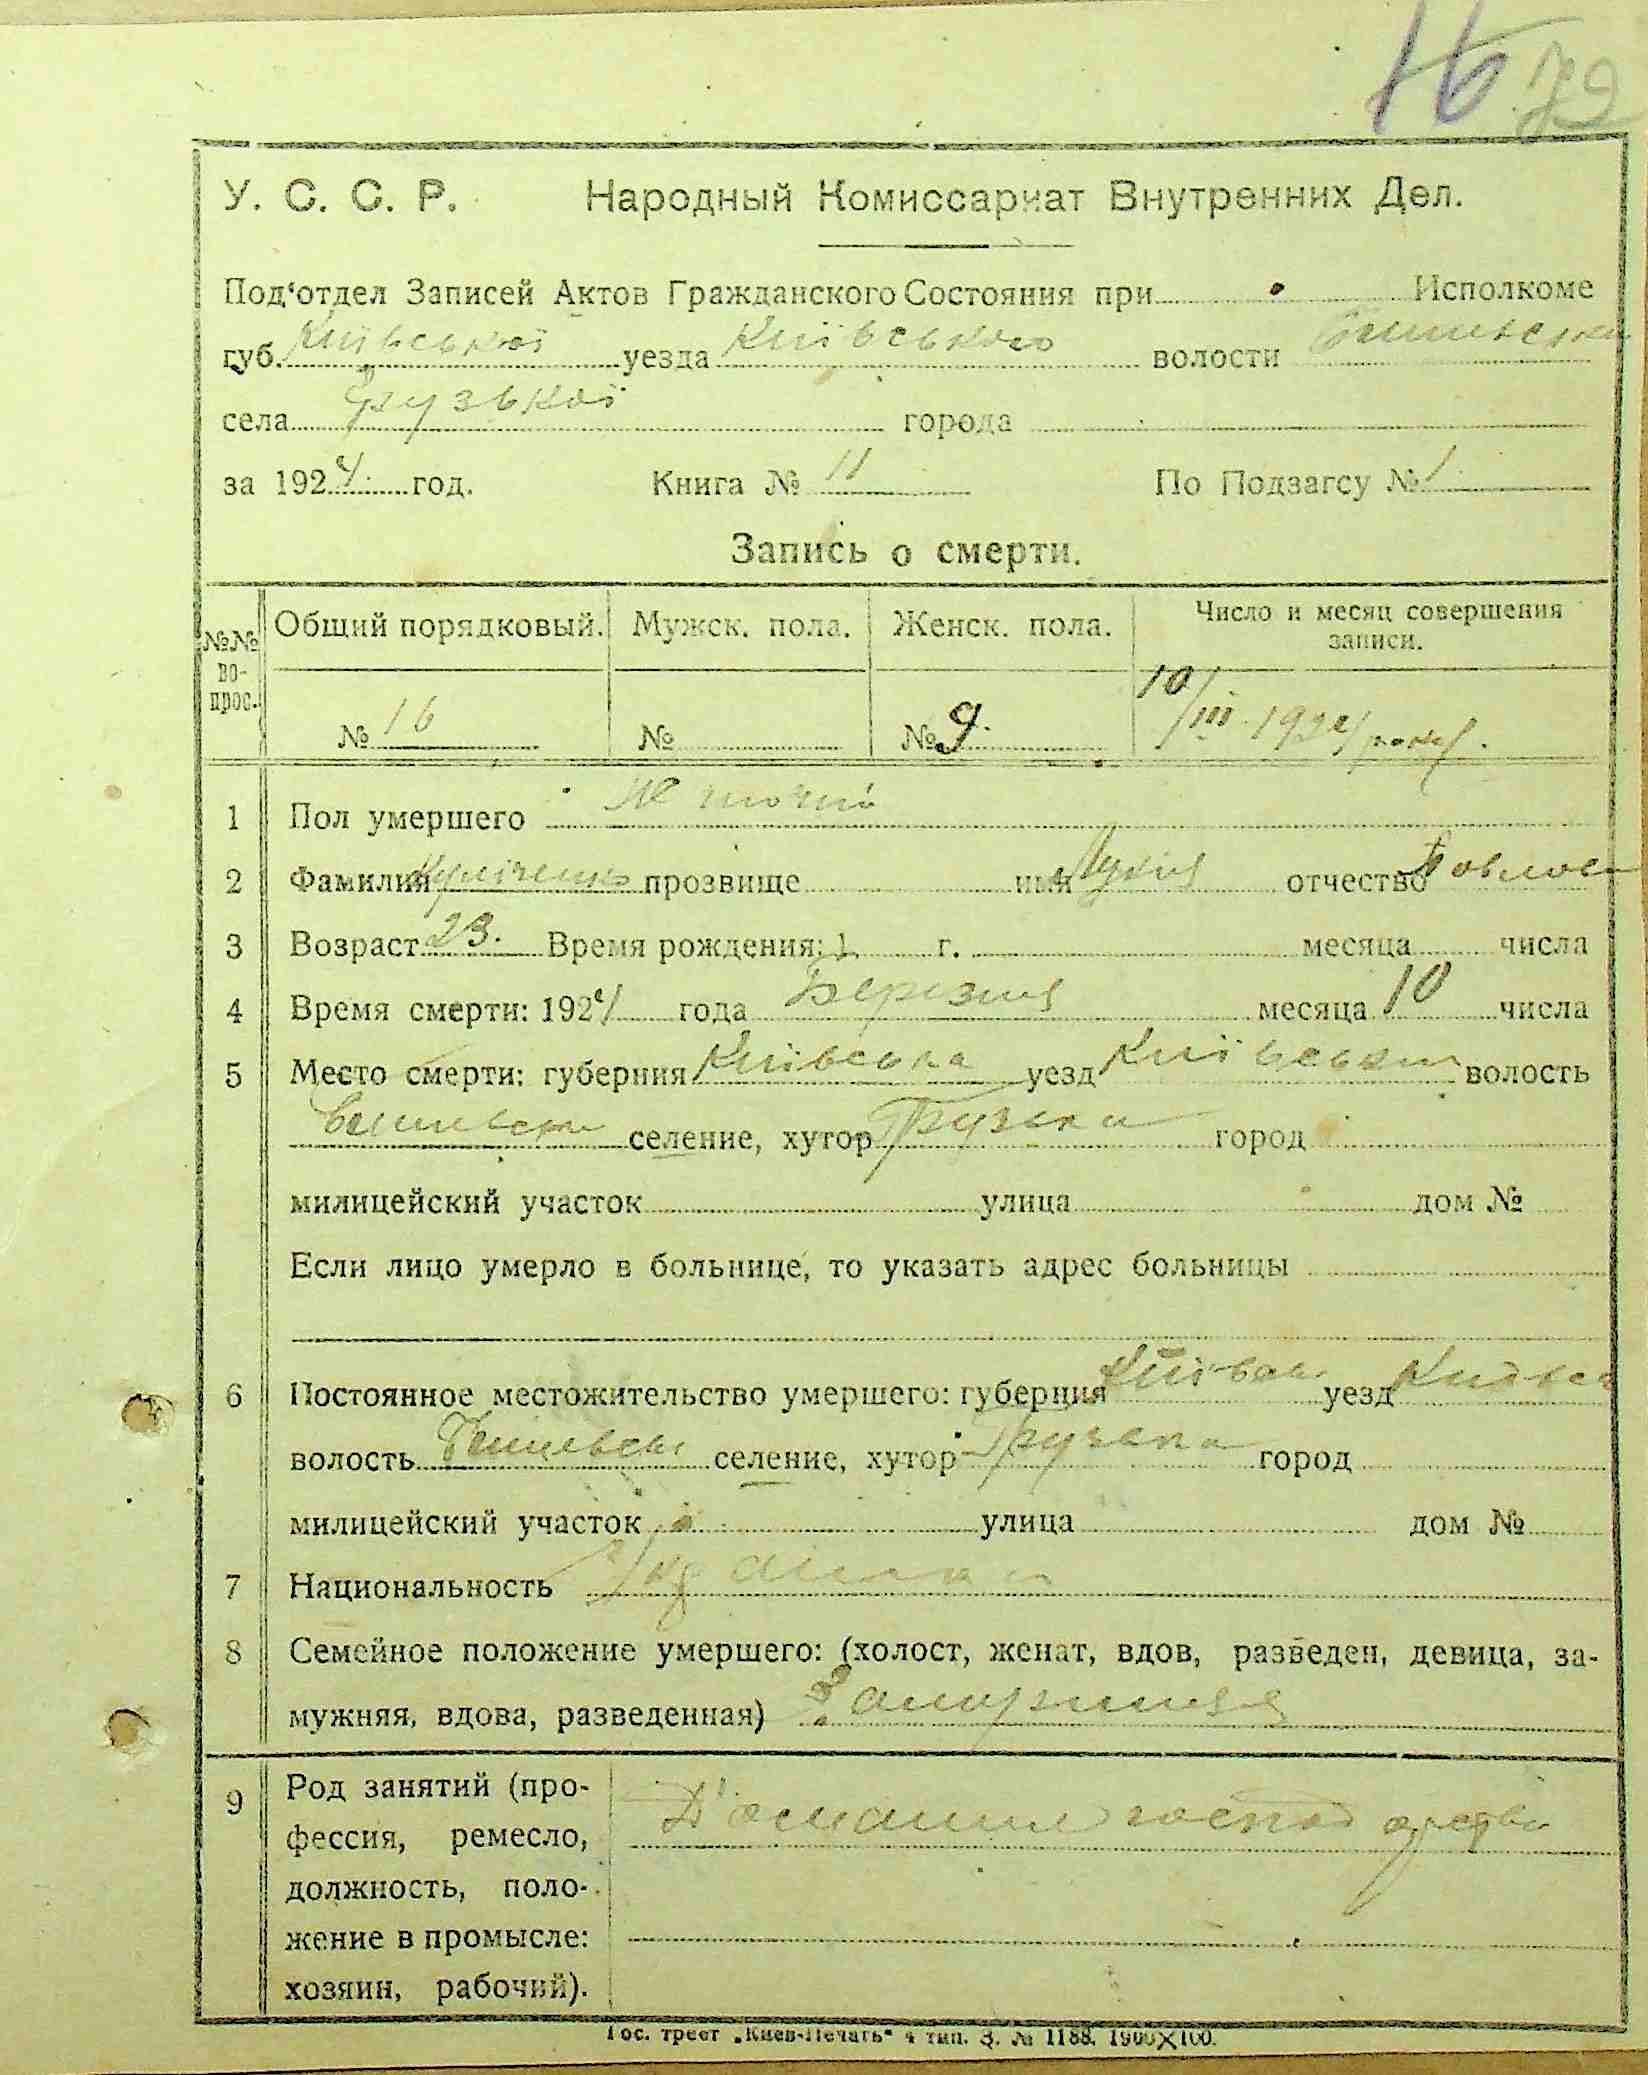 16 79
У. С. С. Р. Народный Комиссариат Внутренних Дел.
Под‘отдел Записей Актов Гражданского Состояния при Исполкоме
губ. Київської уезда Київського волости
села Грузької города
за 1924 год. Книга № 11 По Подзагсу № 1
Запись о смерти.
№№ во-прос. Общий порядковый. Мужск. пола. Женск. пола. Число и месяц совершения записи.
№ 16 № № 9. 10/III 1924 року.
1 Пол умершего Жіночий
2 Фамилия прозвище имя отчество
3 Возраст 23. Время рождения: 1 г. месяца числа
4 Время смерти: 1924 года Березня месяца 10 числа
5 Место смерти: губерния Київська уезд Київський волость
селение, хутор Грузька город
милицейский участок улица дом №
Если лицо умерло в больнице, то указать адрес больницы
6 Постоянное местожительство умершего: губерния уезд
волость селение, хутор Грузька город
милицейский участок улица дом №
7 Национальность
8 Семейное положение умершего: (холост, женат, вдов, разведен, девица, за-
мужняя, вдова, разведенная)
9 Род занятий (про-
фессия, ремесло,
должность, поло-
жение в промысле:
хозяин, рабочий).
Гос. трест „Киев-Печать“ 4 тип. З. № 1188. 1900×100.